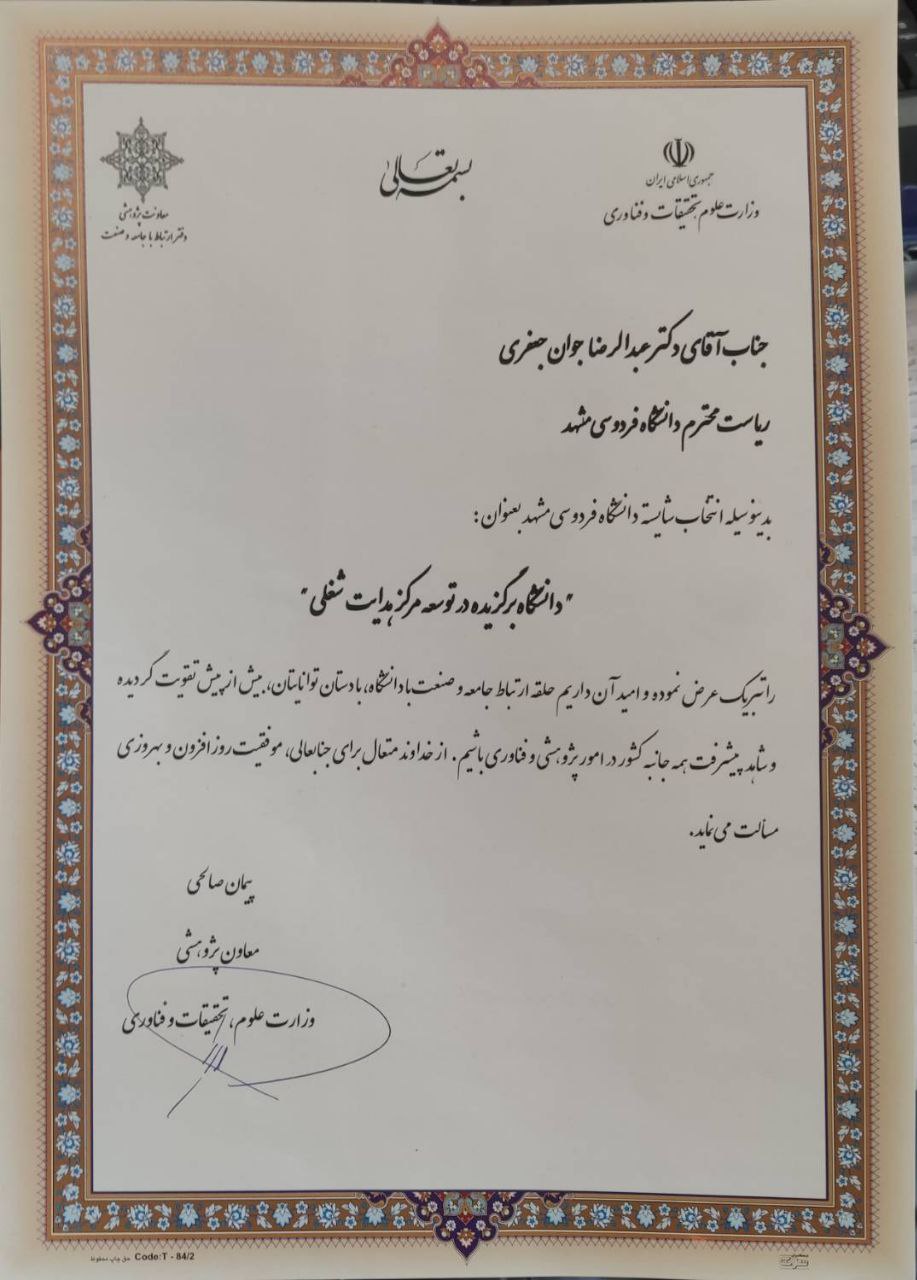 بسمه تعالی
جمهوری اسلامی ایران
وزارت علوم تحقیقات و فناوری
معاونت پژوهشی
دفتر ارتباط با جامعه و صنعت
جناب آقای دکتر عبدالرضا جوان جعفری
ریاست محترم دانشگاه فردوسی مشهد
بدینوسیله انتخاب شایسته دانشگاه فردوسی مشهد بعنوان:
"دانشگاه برگزیده در توسعه مرکز هدایت شغلی"
را تبریک عرض نموده و امید آن داریم حلقه ارتباط جامعه و صنعت با دانشگاه، با دستان تواناتان، بیش از پیش تقویت گردیده
و شاهد پیشرفت همه جانبه کشور در امور پژوهشی و فناوری باشیم. از خداوند متعال برای جنابعالی، موفقیت روز افزون و بهروزی
مسألت می نماید.
پیمان صالحی
معاون پژوهشی
وزارت علوم، تحقیقات و فناوری
حق چاپ محفوظ Code:T - 84/2